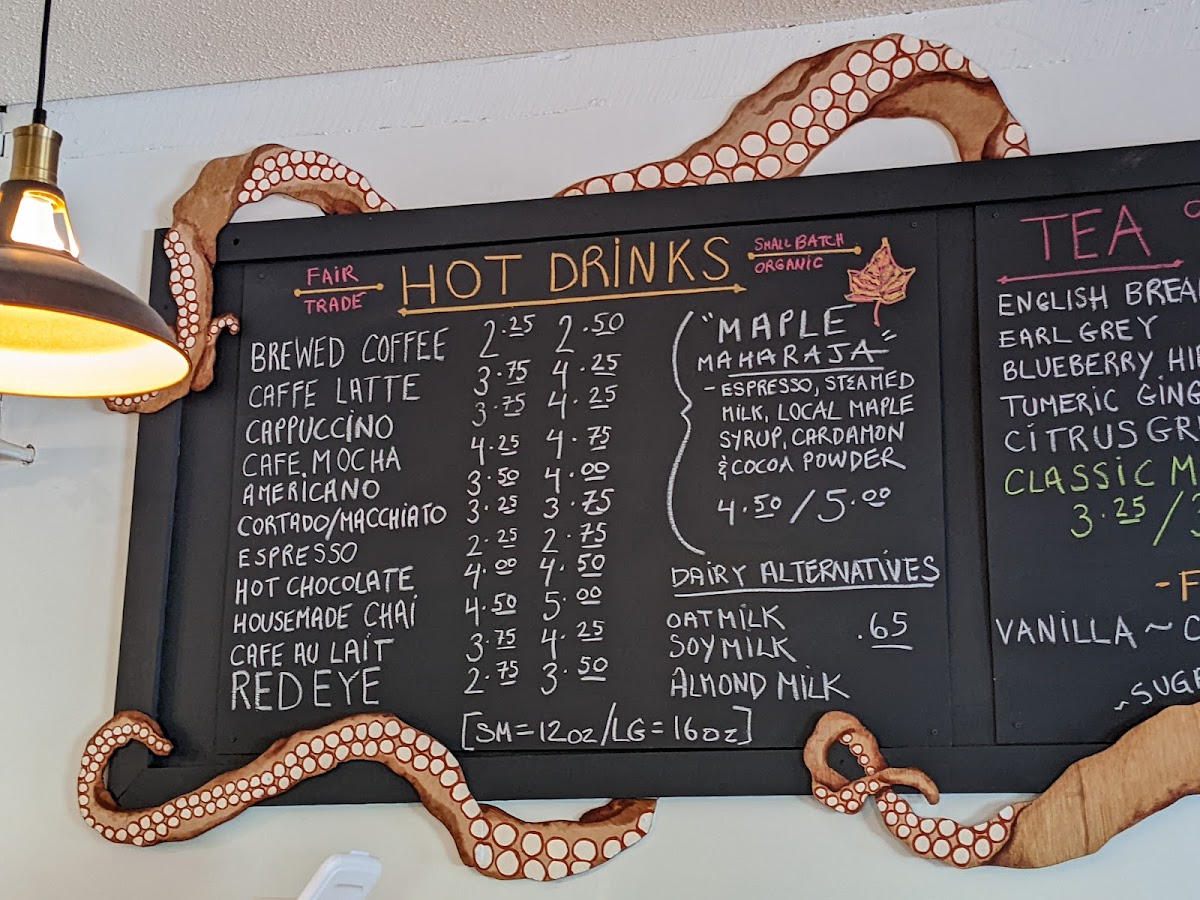 FAIR
TRADE
HOT DRINKS
SMALL BATCH
ORGANIC
BREWED COFFEE 2.25 2.50
CAFFE LATTE 3.75 4.25
CAPPUCCINO 3.75 4.25
CAFE MOCHA 4.25 4.75
AMERICANO 3.50 4.00
CORTADO/MACCHIATO 3.25 3.75
ESPRESSO 2.25 2.75
HOT CHOCOLATE 4.00 4.50
HOUSEMADE CHAI 4.50 5.00
CAFE AU LAIT 3.75 4.25
RED EYE 2.75 3.50
[SM=12oz/LG=16oz]
"MAPLE
MAHARAJA"
- ESPRESSO, STEAMED
MILK, LOCAL MAPLE
SYRUP, CARDAMON
& COCOA POWDER
4.50/5.00
DAIRY ALTERNATIVES
OAT MILK
SOY MILK .65
ALMOND MILK
TEA
ENGLISH BREA
EARL GREY
BLUEBERRY HI
TUMERIC GING
CITRUS GR
CLASSIC M
3.25/
- F
VANILLA ~ C
~ SUGA